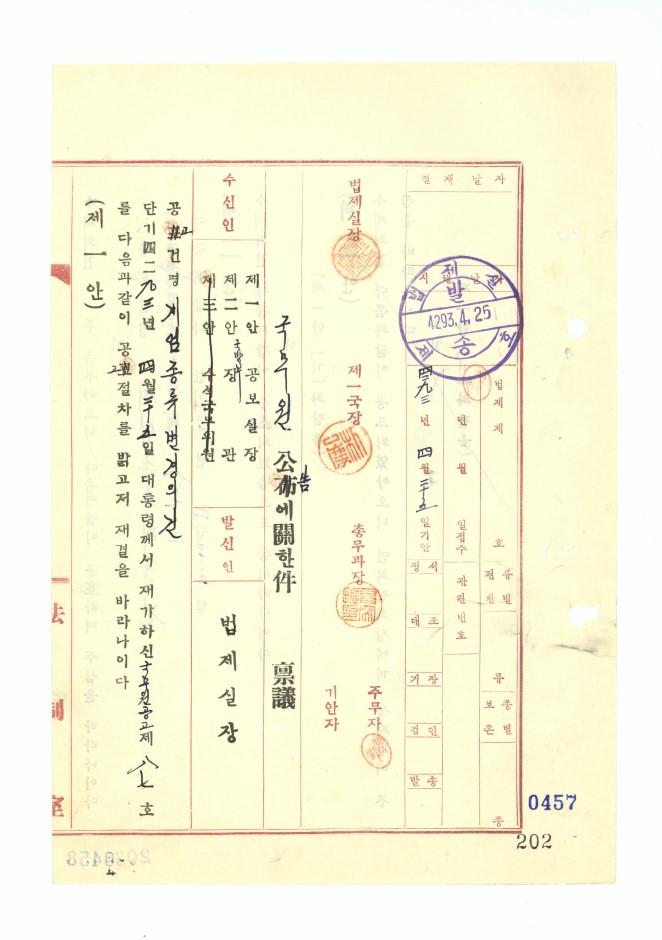 결재날자
시행날자
법제실
발송
4293.4.25
법제제 호
四二九三年 四月 二十五일기안
년 월 일접수
관련번호
정서
대조
기장
검인
발송
편찬 류별
류
보존 종별
종
법제실장
제一국장
총무과장
주무자
기안자
국무원 公佈告에關한件 稟議
수신인
제一안 공보실장
제二안 국방부장관
제三안 수석국무위원
발신인
법제실장
공고건명 계엄종류변경의건
단기四二九三년 四월二十五일 대통령께서 재가하신 국무원공고제 八七 호
를 다음과같이 공고절차를 밝고저 재결을 바라나이다
(제一안)
法制室
0457
202